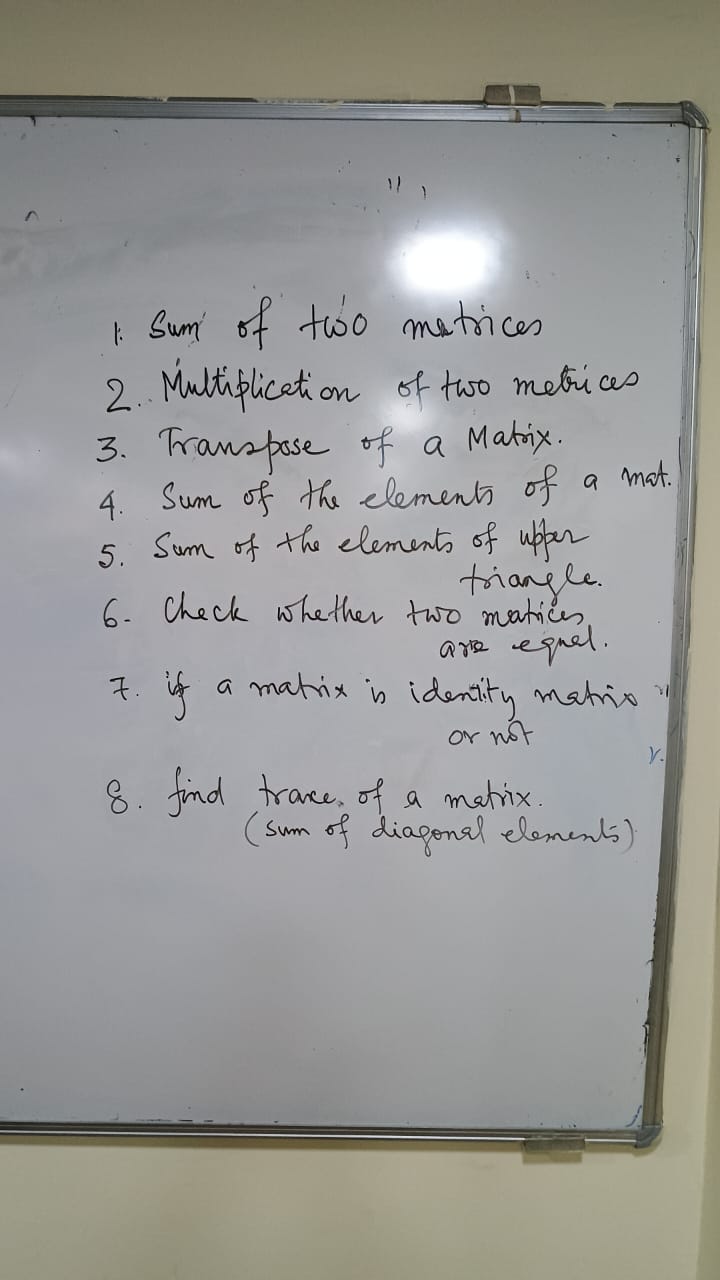 1. Sum of two matrices
2. Multiplication of two metrices
3. Transpose of a Matrix.
4. Sum of the elements of a mat.
5. Sum of the elements of upper
triangle.
6- Check whether two matices
are equal.
7. if a matrix is identity matrix
or not
8. find trace of a matrix.
(sum of diagonal elements)